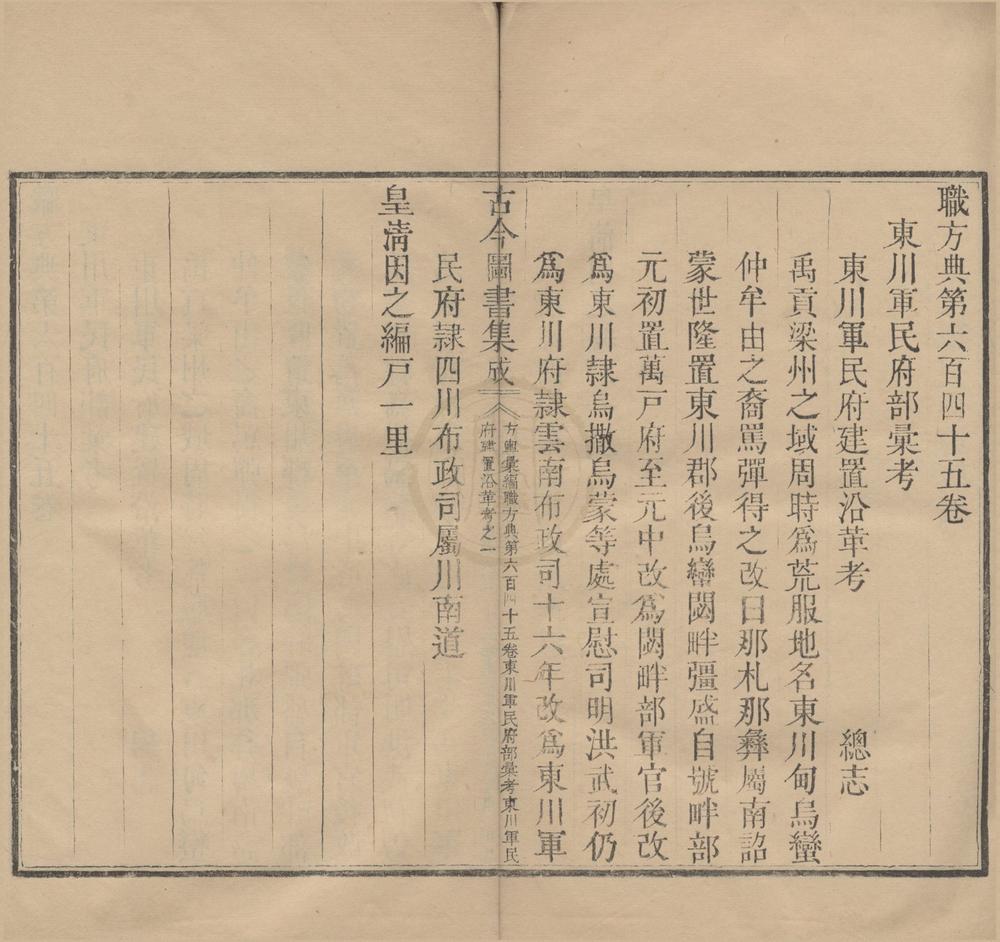 職方典第六百四十五卷
東川軍民府部彙考
東川軍民府建置沿革考 總志
禹貢梁州之域周時爲荒服地名東川甸烏蠻
仲牟由之裔罵彈得之改曰那札那彝屬南詔
蒙世隆置東川郡後烏蠻閟畔彊盛自號畔部
元初置萬戸府至元中改爲閟畔部軍官後改
爲東川隷烏撒烏蒙等處宣慰司明洪武初仍
爲東川府隷雲南布政司十六年改爲東川軍
古今圖書集成
方輿彙編職方典第六百四十五卷東川軍民府部彙考東川軍民
府建置沿革考之一
民府隷四川布政司屬川南道
皇淸因之編戸一里